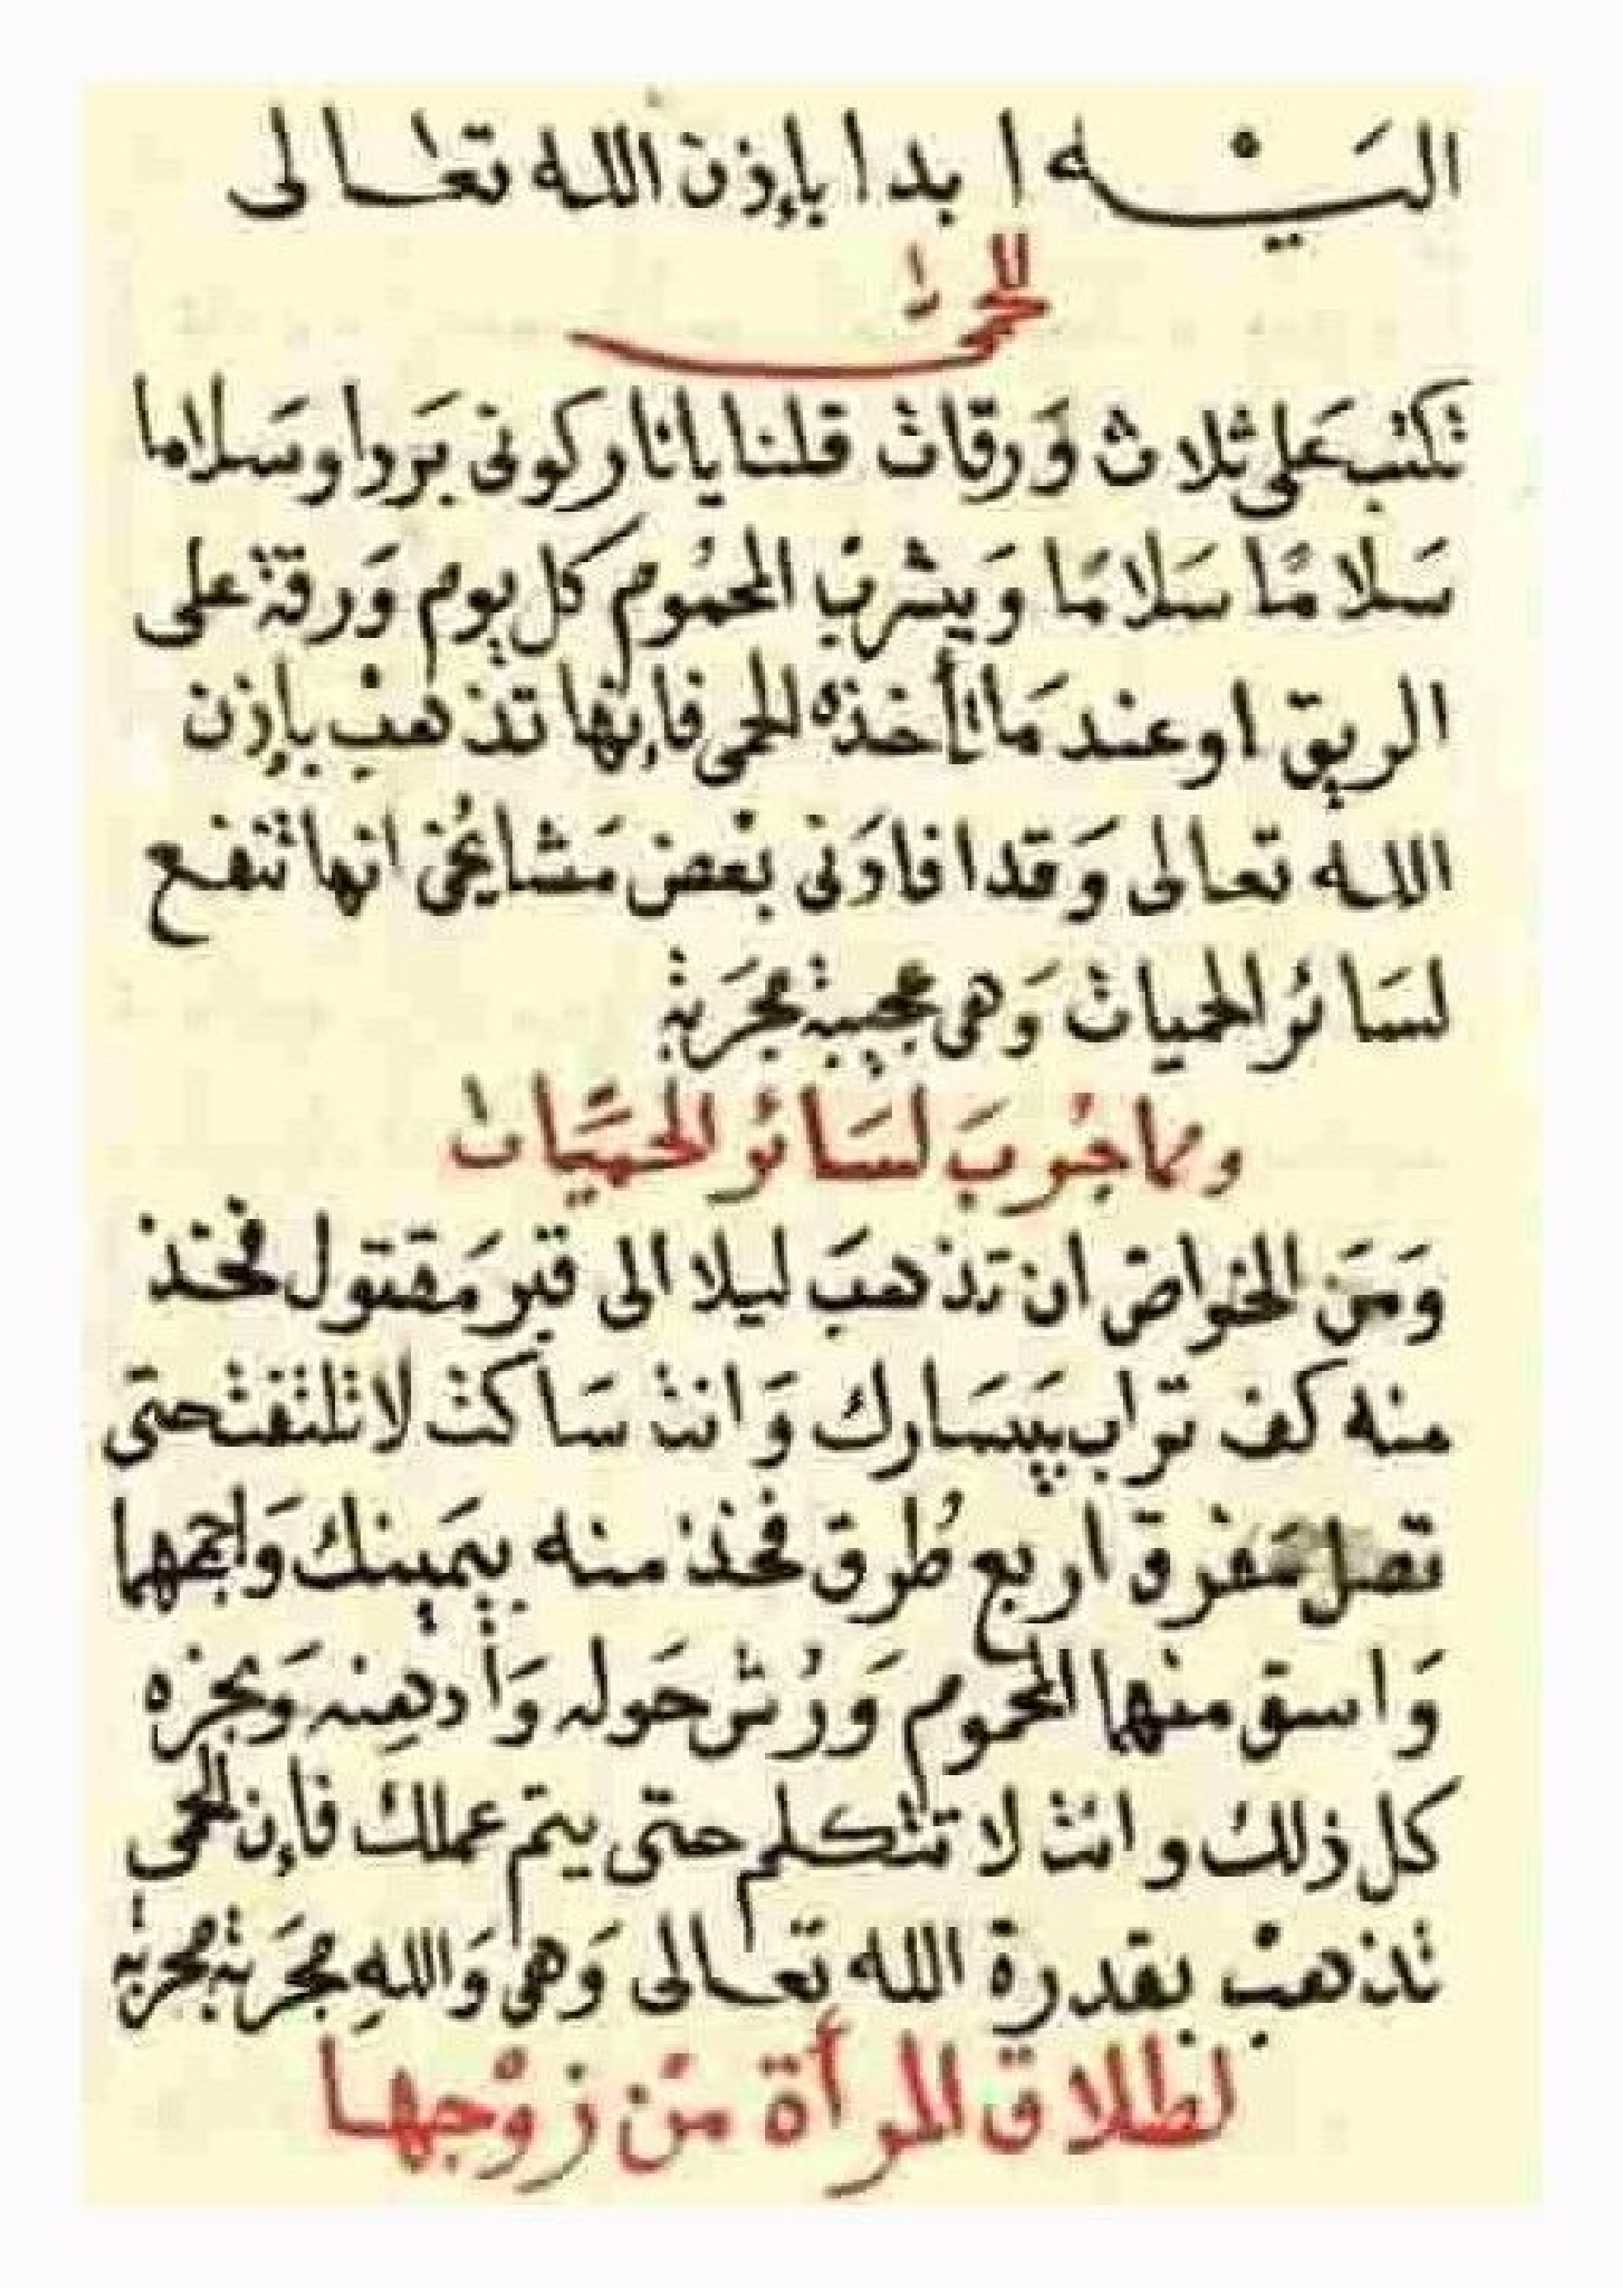 اليـــه ابدا بإذن الله تعالى
للحمى
تكتب على ثلاث وَرقات قلنا يا نار كونى بَردا وسَلاما
سَلامًا سَلامًا وَيشرب المحمُوم كل يوم وَرقة على
الريق او عند مَا تأخذه للحمى فإنها تذهب بإذن
الله تعالى وَقد افاوَنى بعض مَشايخى انها تنفع
لسَائر الحميات وَهى عجيبة مجرَبة
ومما جُرب لسَائر الحميَّات
وَمن الخواص ان تذهبَ ليلا الى قبر مَقتول فخذ
منه كف تراب بيسَارك وَانت سَاكت لا تلتفت حتى
تصل مَفرق اربع طُرق فخذ منه بيَمينك وَاجمعها
وَاسق منها المحموم وَرُش حَوله وَأدهنه وَبخره
كل ذلك وانت لا تتكلم حتى يتم عملك فإن الحمى
تذهب بقدرة الله تعالى وَهى وَاللهِ مجرَبة مجربة
لطلاق المرأة من زوْجها